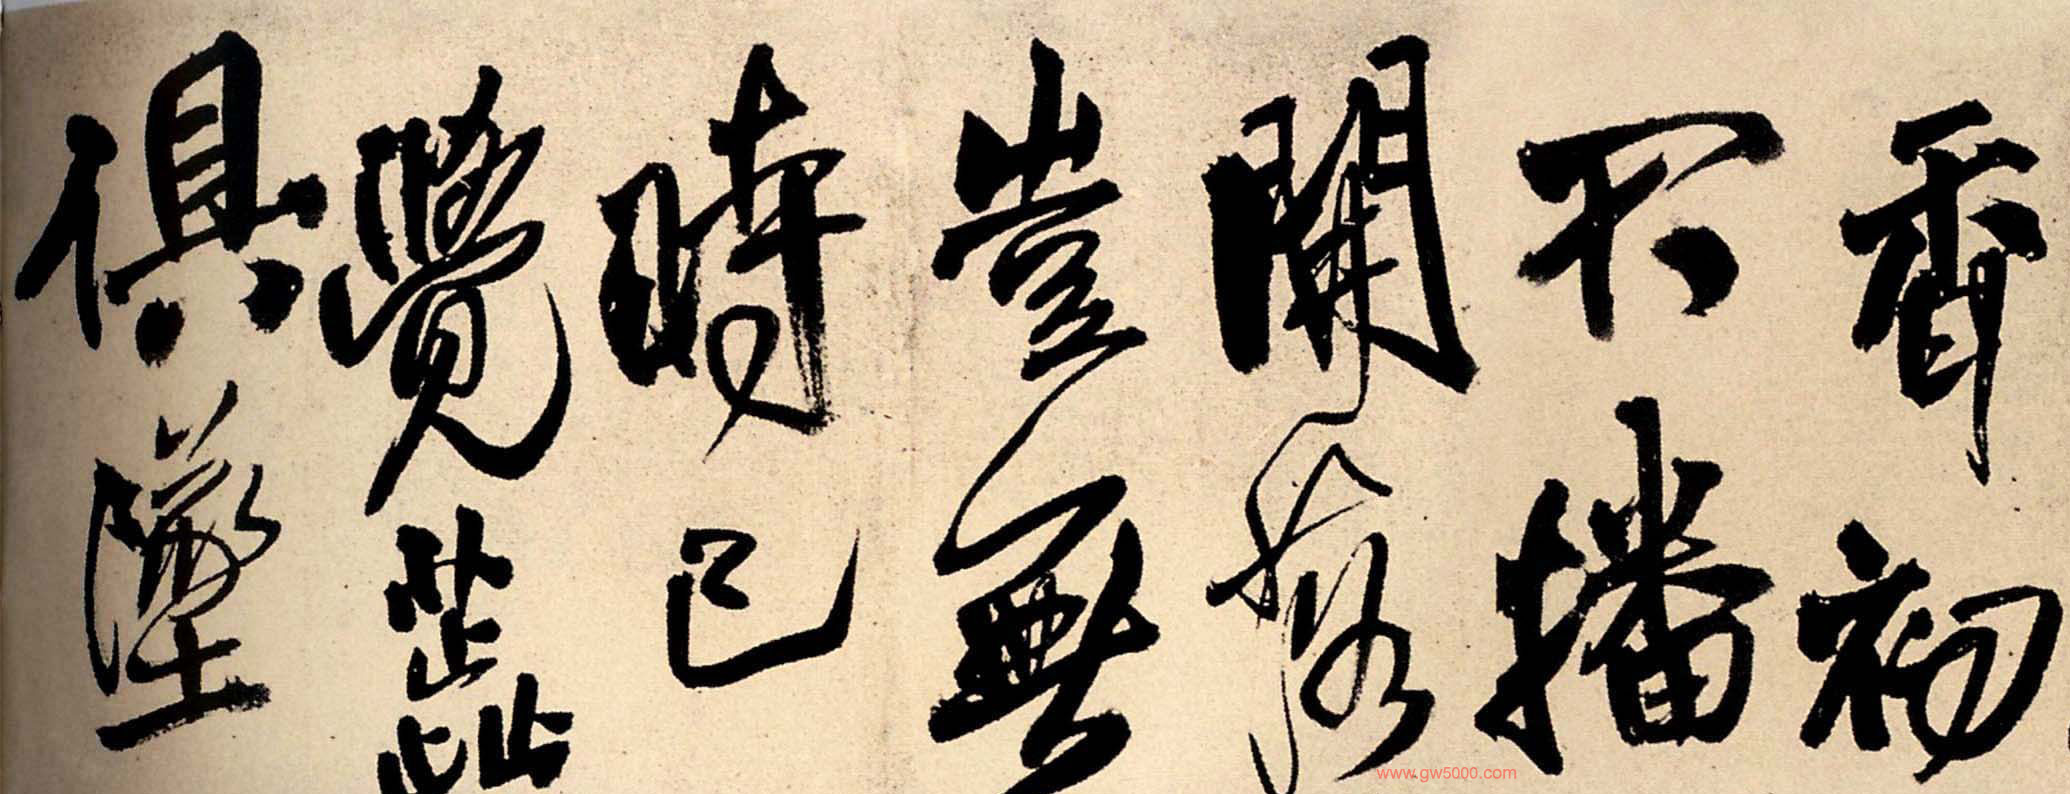 香初
不播
開落
豈無
時已
覺蕋
俱墜
www.gw5000.com